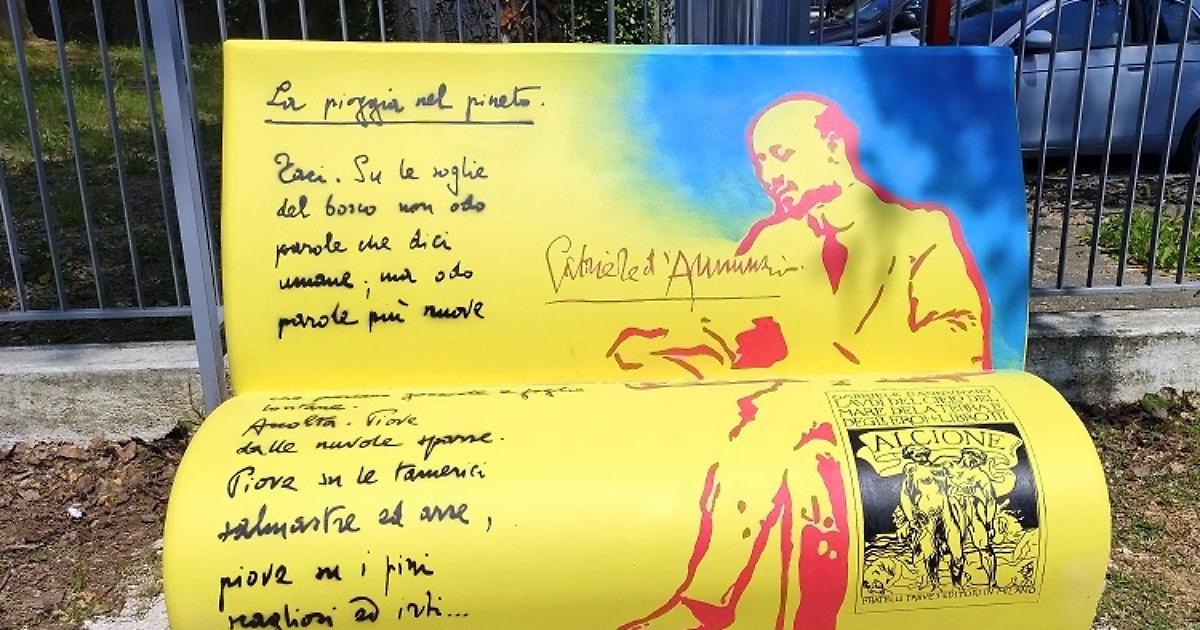 La pioggia nel pineto.
Taci. Su le soglie
del bosco non odo
parole che dici
umane; ma odo
parole più nuove
che parlano gocciole e foglie
lontane.
Ascolta. Piove
dalle nuvole sparse.
Piove su le tamerici
salmastre ed arse,
piove su i pini
scagliosi ed irti...
Gabriele d'Annunzio.
GABRIELE D'ANNUNZIO
LAVDI DEL CIELO DEL
MARE DELLA TERRA E
DEGLI EROI LIBRO III
ALCIONE
FRATELLI TREVES EDITORI IN MILANO